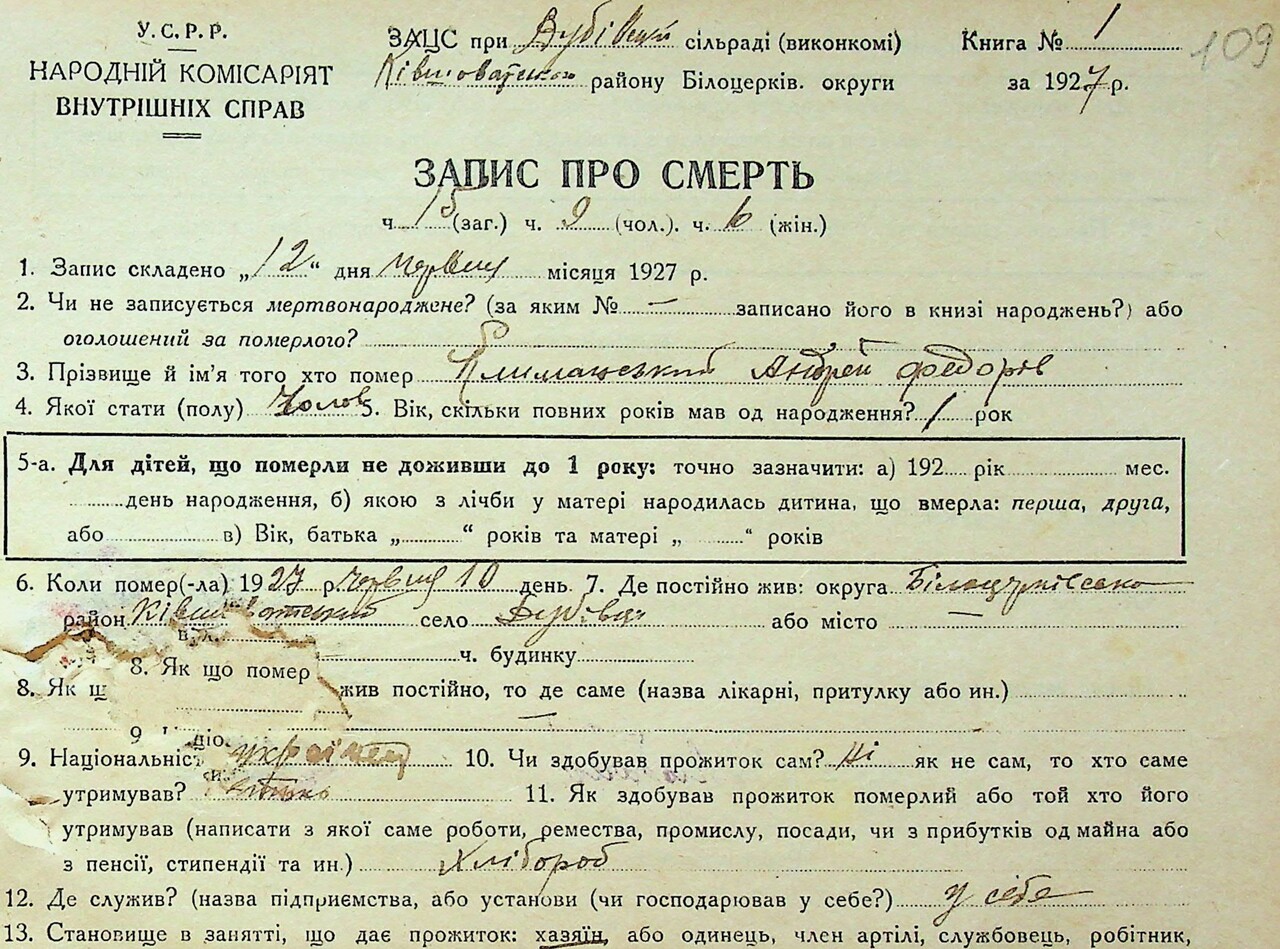 У.С.Р.Р.
НАРОДНІЙ КОМІСАРІЯТ
ВНУТРІШНІХ СПРАВ
ЗАЦС при Дубівецкій сільраді (виконкомі)
Ківшоватського району Білоцерків. округи
Книга № 1
за 1927 р.
109
ЗАПИС ПРО СМЕРТЬ
ч. 15 (заг.) ч. 9 (чол.). ч. 6 (жін.)
1. Запис складено „12“ дня червця місяця 1927 р.
2. Чи не записується мертвонароджене? (за яким № — записано його в книзі народжень?) або
оголошений за померлого?
3. Прізвище й ім'я того хто помер Климанський Андрей Федорів
4. Якої стати (полу) Чолов 5. Вік, скільки повних років мав од народження? 1 рок
5-а. Для дітей, що померли не доживши до 1 року: точно зазначити: а) 192 рік мес.
день народження, б) якою з лічби у матері народилась дитина, що вмерла: перша, друга,
або в) Вік, батька „ “ років та матері „ “ років
6. Коли помер(-ла) 1927 р. червця 10 день. 7. Де постійно жив: округа Білоцерківська
район Ківшоватський село Дубівці або місто —
ч. будинку
8. Як що помер
8. Як щ жив постійно, то де саме (назва лікарні, притулку або ин.)
—
9
9. Національніст українец 10. Чи здобував прожиток сам? Ні як не сам, то хто саме
утримував? батько 11. Як здобував прожиток померлий або той хто його
утримував (написати з якої саме роботи, ремества, промислу, посади, чи з прибутків од майна або
з пенсії, стипендії та ин.) Хлібороб
12. Де служив? (назва підприємства, або установи (чи господарював у себе?) у себе
13. Становище в занятті, що дає прожиток: хазяїн, або одинець, член артілі, службовець, робітник,